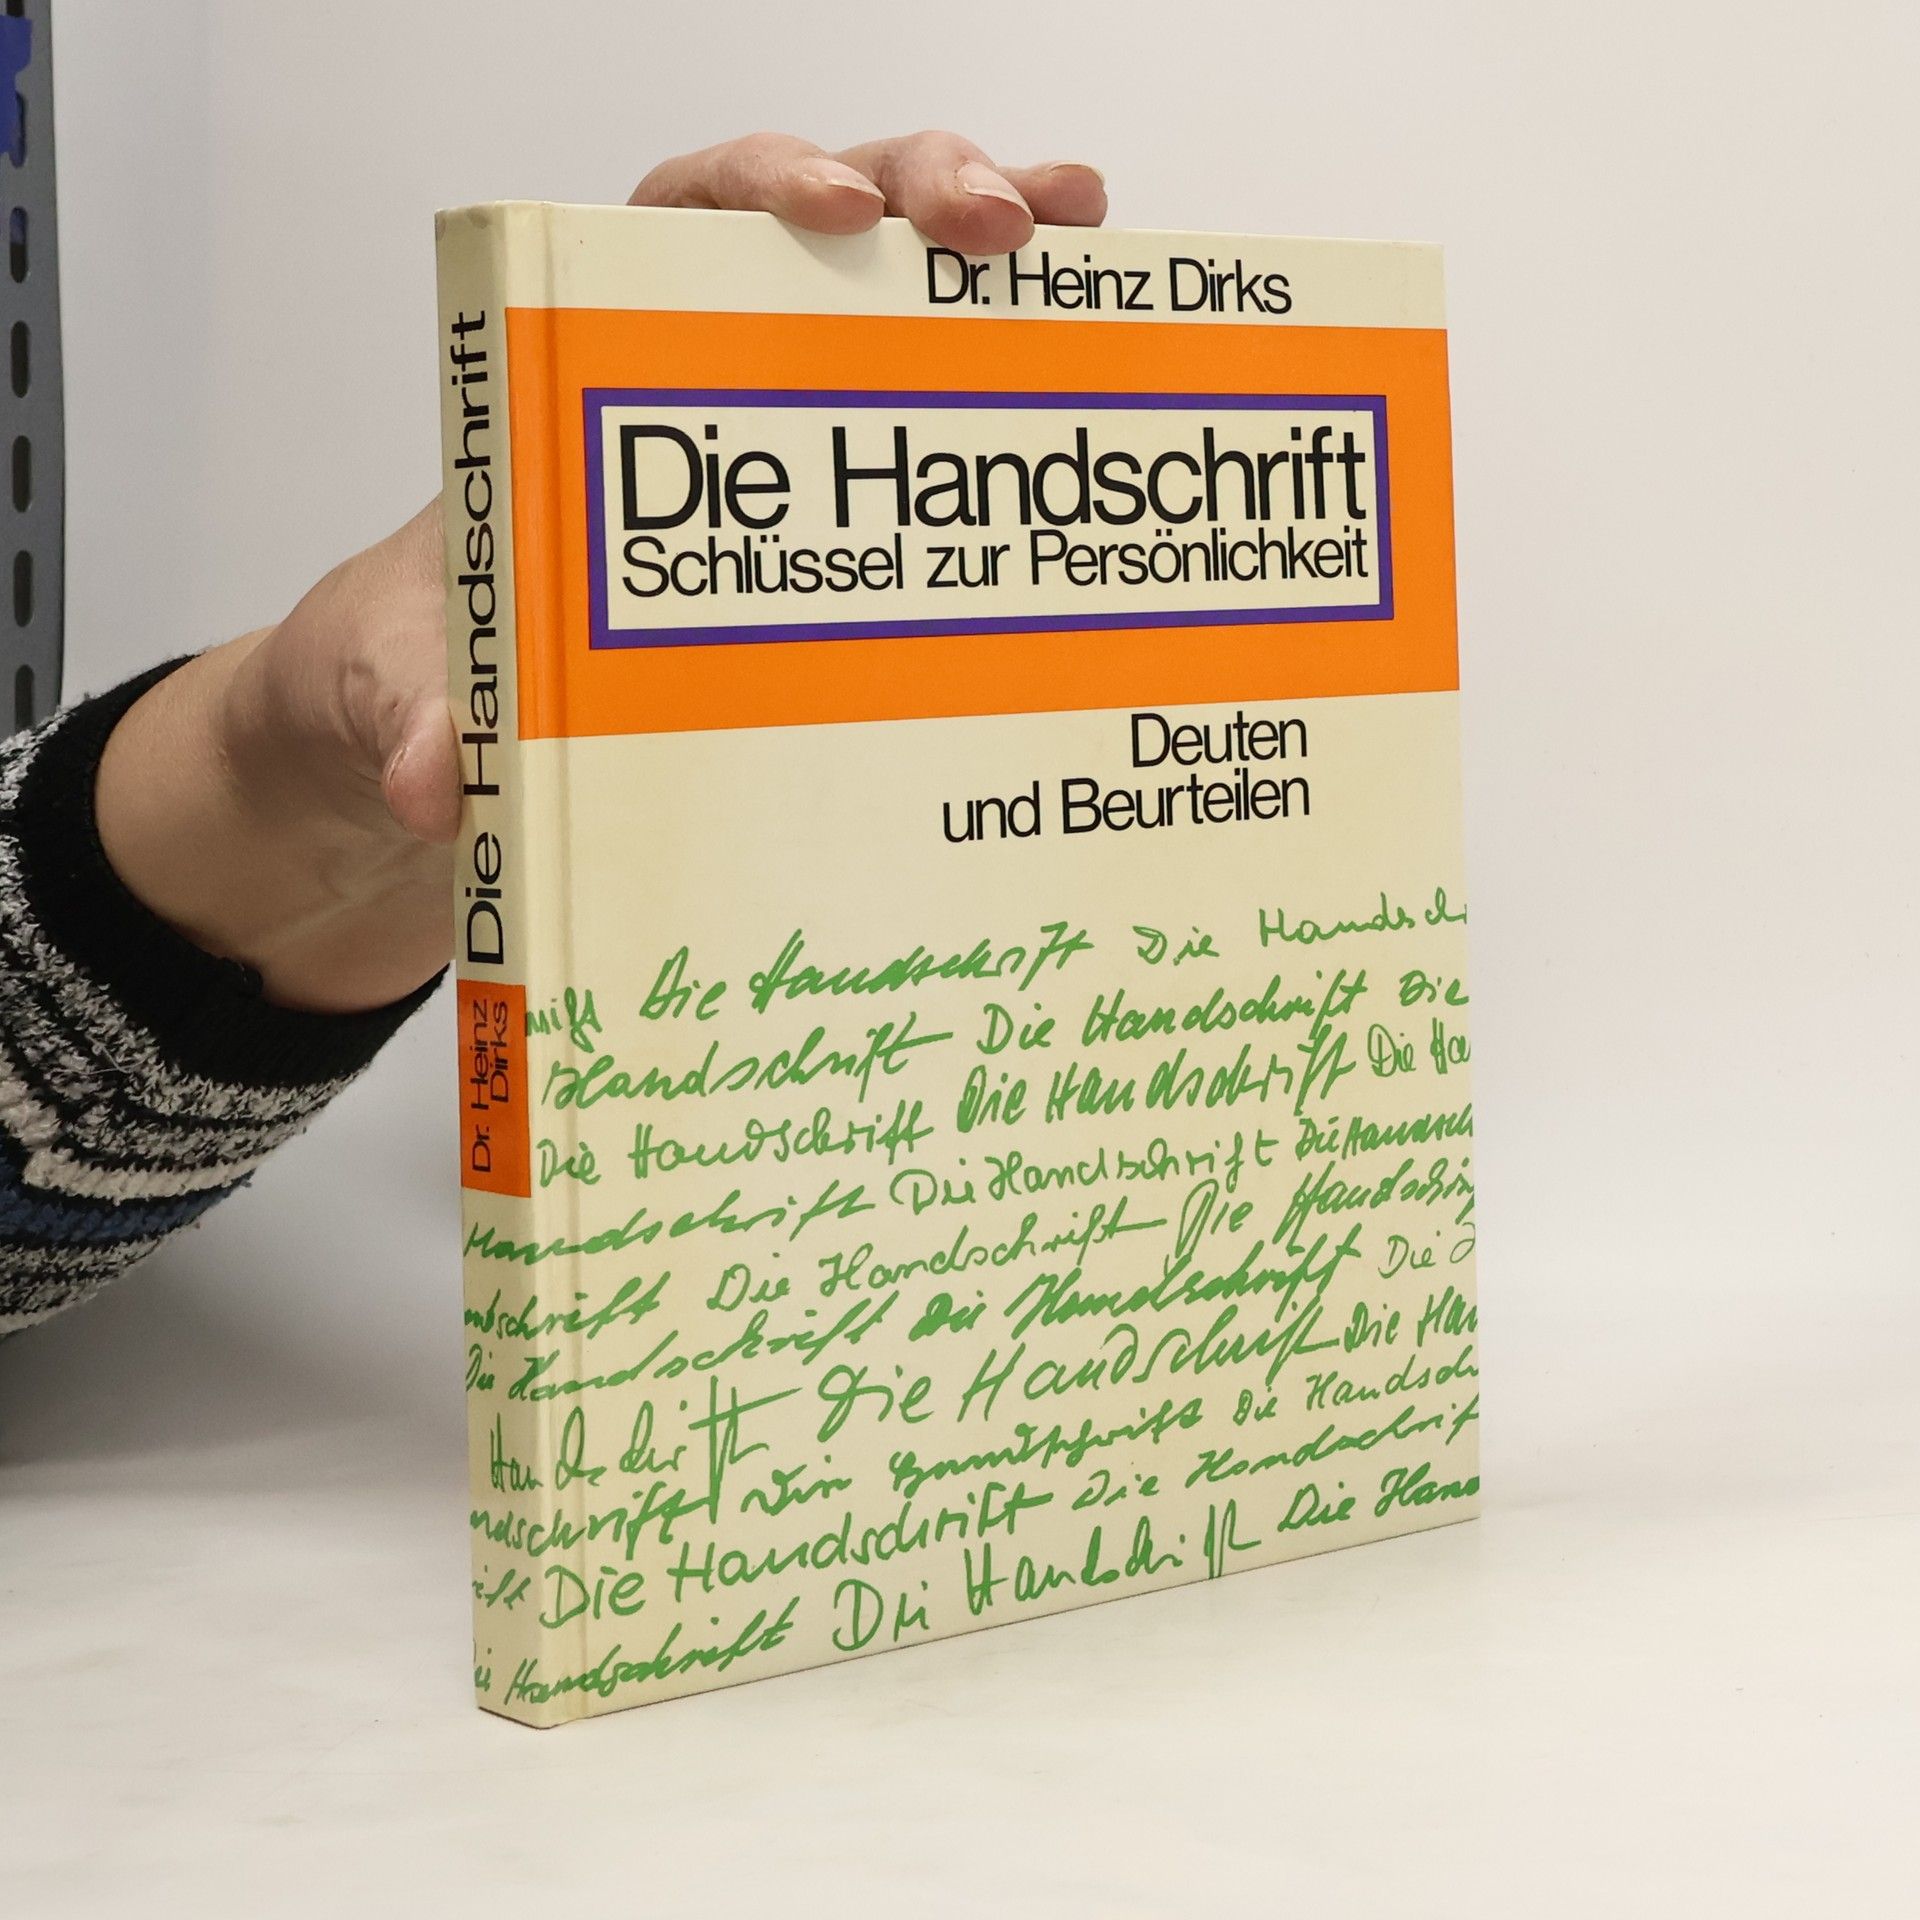 Dr. Heinz Dirks
Die Handschrift
Schlüssel zur Persönlichkeit
Deuten
und Beurteilen
Die Handschrift
Dr. Heinz
Dirks
Die Handschrift Die Handsch
rift Handschrift Die Handschrift Die
Die Handschrift Die Handschrift Die Ha
Handschrift Die Handschrift Die Handsch
ndschrift Die Handschrift Die Handschrif
Die Handschrift Die Handschrift Die H
Handschrift Die Handschrift Die Han
ndschrift Die Handschrift Die Handsch
rift Die Handschrift Die Handschrift
Die Handschrift Die Handschrift Die Hand